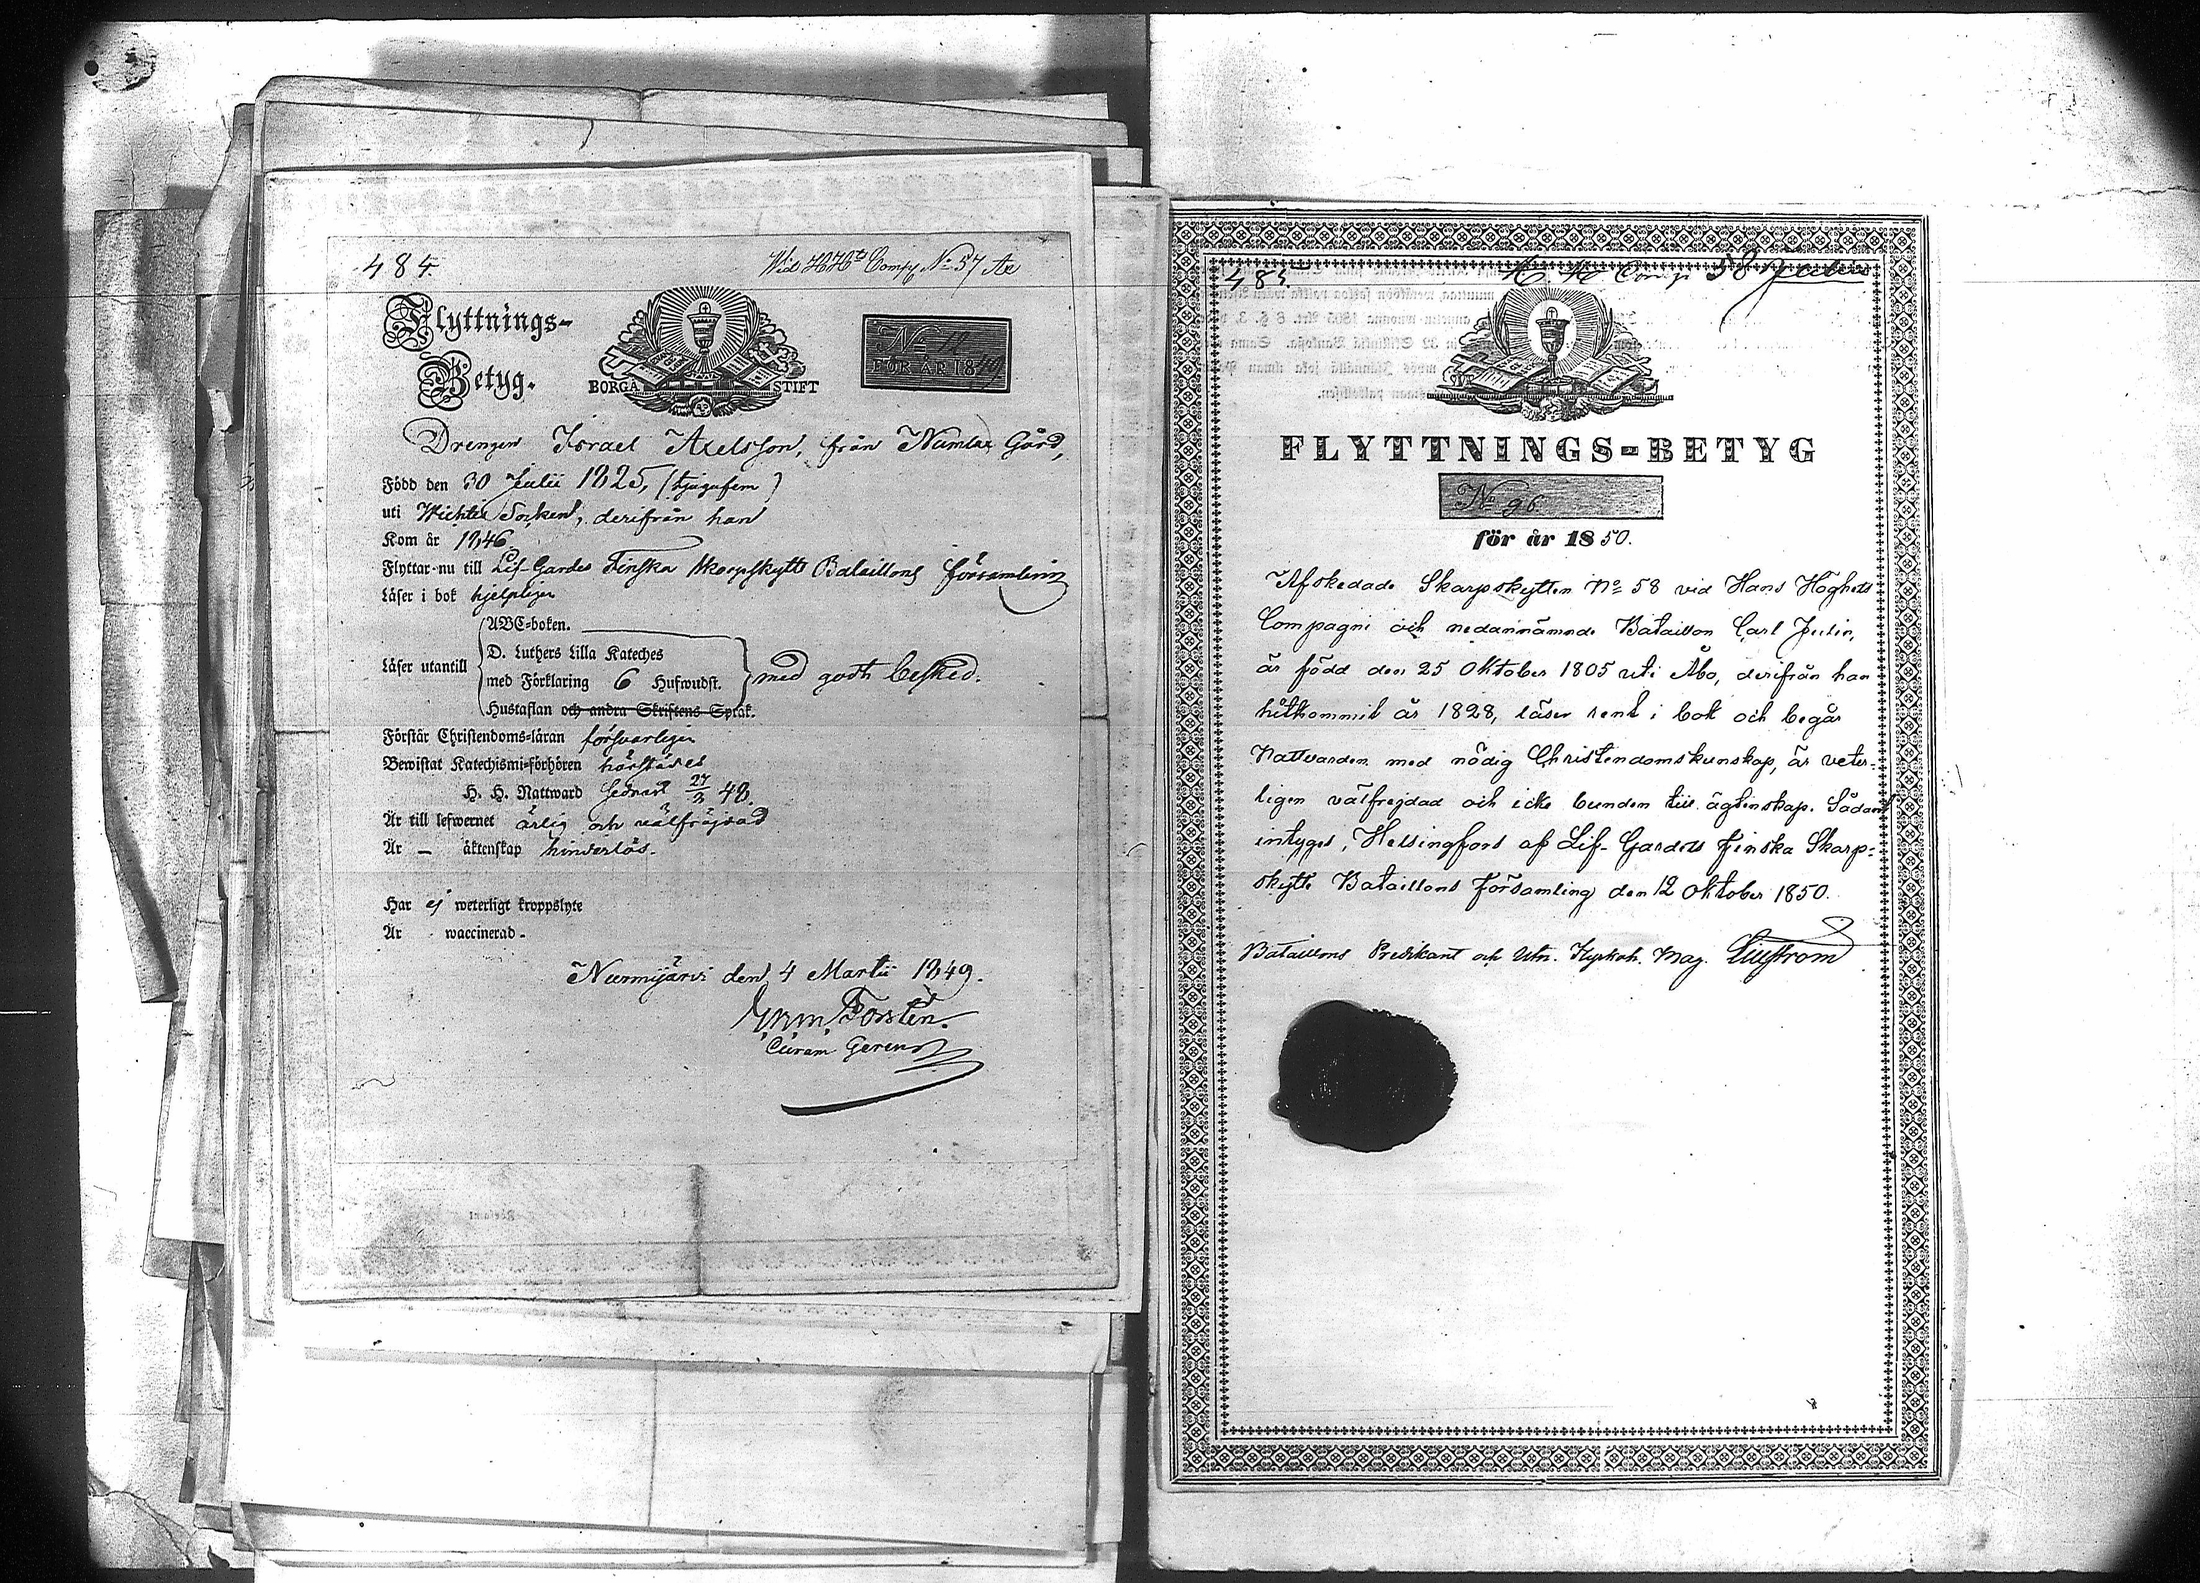 484.
Wid H.H:ts Comp. No 57 Ax
Flyttnings-
Betyg.
BORGÅ STIFT
No 11
FÖR ÅR 1849
Drengen Israel Axelsson, från Numlax Gård,
Född den 30 Julii 1825, (tjugufem)
uti Wichtis Socken, derifrån han
Kom år 1846
Flyttar nu till Lif-Gardes Finska Skarpskytte Bataillons församling
Läser i bok hjelpligen
ABC-boken.
D. Luthers Lilla Kateches
Läser utantill
med Förklaring 6 Hufwudst.
med godt besked.
Hustaflan och andra Skriftens Språk.
Förstår Christendoms-läran försvarligen
Bewistat Katechismi-förhören härstädes
H. H. Nattward senast 27/3 48.
Är till lefwernet ärlig och välfräjdad
Är — äktenskap hinderlös.
Har ej weterligt kroppslyte
Är waccinerad.
Nurmijärvi den 4 Martii 1849.
Forstén.
Curam Gerens
485.
H. H. Comp. 58 Julin
FLYTTNINGS-BETYG
No 96
för år 1850.
Afskedade Skarpskytten No 58 vid Hans Höghets
Compagni och nedannämnde Bataillon Carl Julin,
är född den 25 Oktober 1805 uti Åbo, derifrån han
hitkommit år 1828, läser rent i bok och begår
Nattvarden med nödig Christendomskunskap, är veter-
ligen välfrejdad och icke bunden till ägtenskap. Sådant
intygas, Helsingfors af Lif-Gardets Finska Skarp-
skytte Bataillons Församling den 12 Oktober 1850.
Bataillons Predikant och Utn. Kyrkoh. Mag. Liljstrom